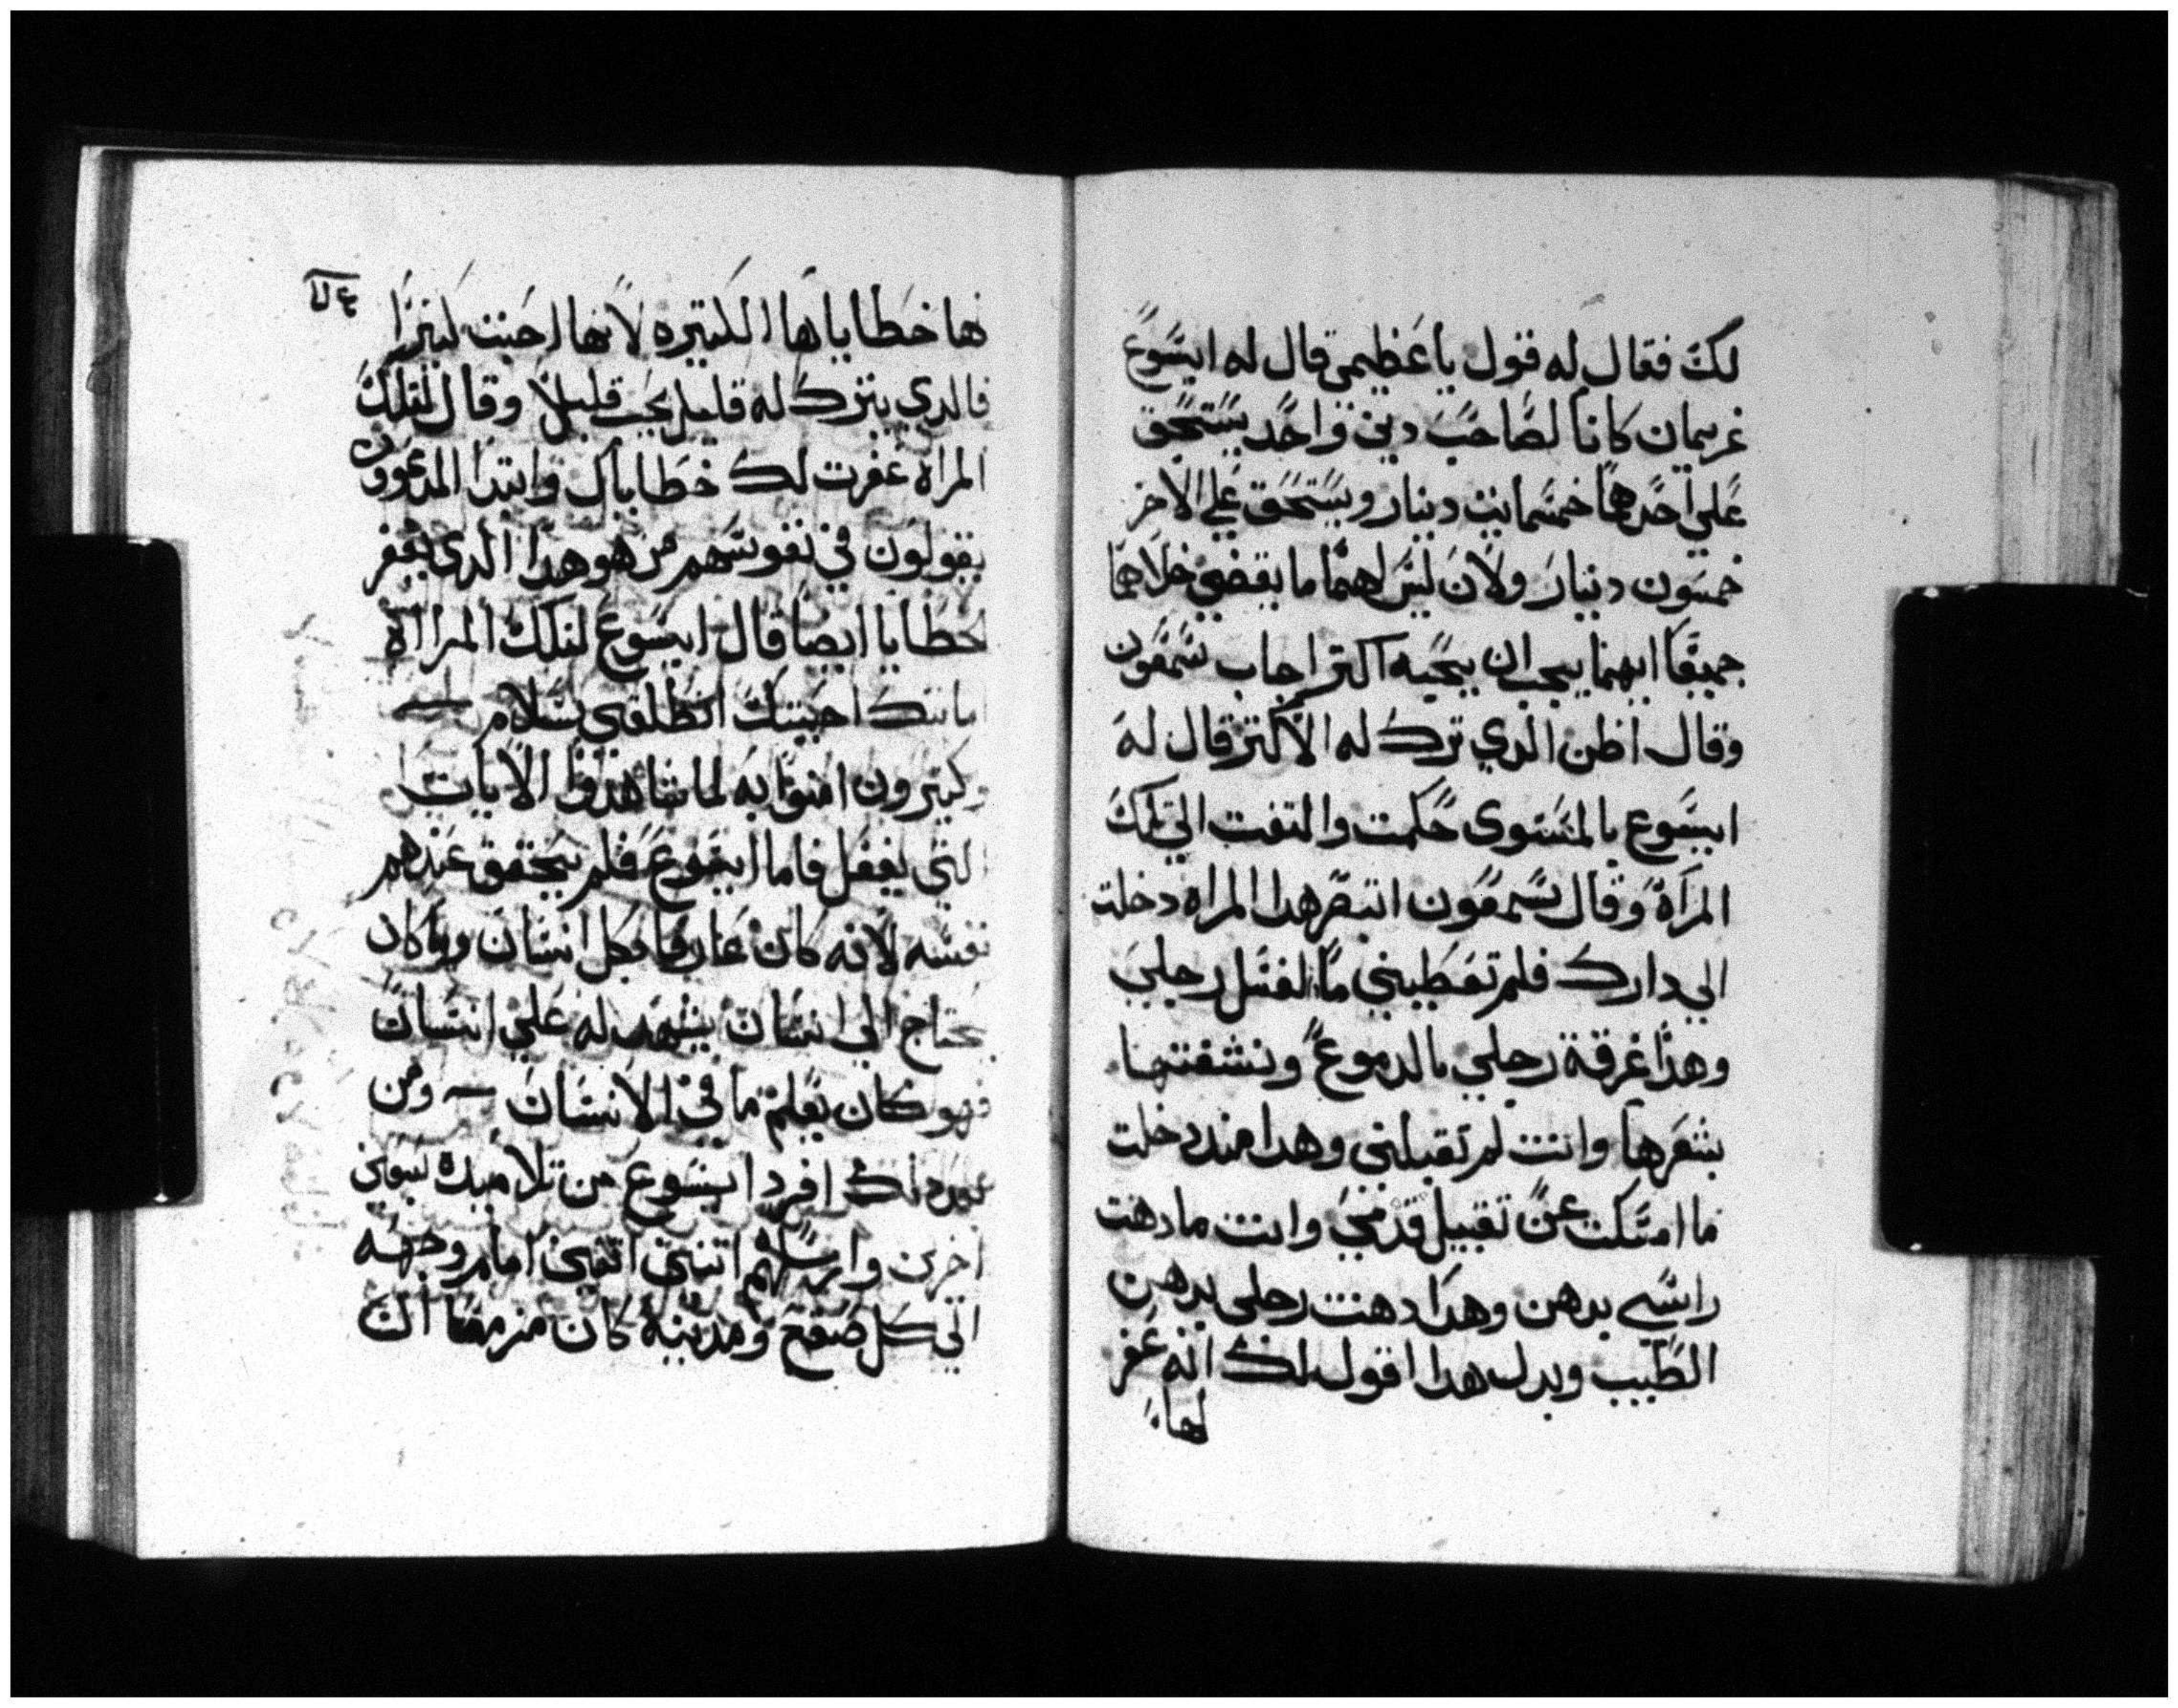 لك فقال له قول يا عظيمي قال له ايسوع
غريمان كانا لصاحب دين واحد يستحق
علي احدهما خمسمايت دينار ويستحق علي الاخر
خمسون دينار ولان ليس لهما ما يقضي خلاهما
جميعا ايهما يجب ان يحبه اكتر اجاب سمعون
وقال اظن الدي ترك له الاكتر قال له
ايسوع بالمستوى حكمت والتفت الي تلك
المراة وقال لسمعون اتبصر هدا المراه دخلت
الي دارك فلم تعطيني ما لغسل رجلي
وهدا غرقة رجلي بالدموع ونشفتهما
بشعرها وانت لم تقبلني وهدا مند دخلت
ما امسكت عن تقبيل قدمي وانت ما دهنت
راسي بدهن وهدا دهنت رجلي بدهن
الطيب وبدل هدا اقول لك انه غفر
لها
ها خطاياها الكتيره لانها احبت كتيرا
فالدي يترك له قليل يحب قليلا وقال لتلك
المراه غفرت لك خطاياك وابتدا المدعوون
يقولون في نفوسهم من هو هدا الدي يغفر
خطايا ايضا قال ايسوع لتلك المراه
امانتك احيتك انطلقي بسلام
وكتيرون امنوا به لما شاهدوا الايات
التي يفعل فاما ايسوع فلم يحقق عندهم
نفسه لانه كان عارفا بكل انسان وما كان
يحتاج الي انسان يشهد له علي انسان
فهو كان يعلم ما في الانسان ومن
بعد دلك افرد ايسوع من تلاميده سبعين
اخرين وارسلهم اتنين اتنين امام وجهه
الي كل صقع ومدينه كان مزمعا ان